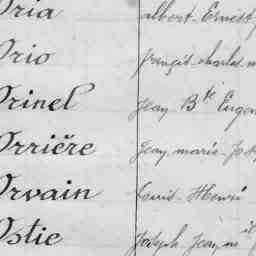 Oria albert-Ernest
Orio françois-charles-m
Orinel Jean Bte Eugen
Orrière Jean-marie-Jos
Orvain Louis-Henri
Ostie Joseph-Jean, m